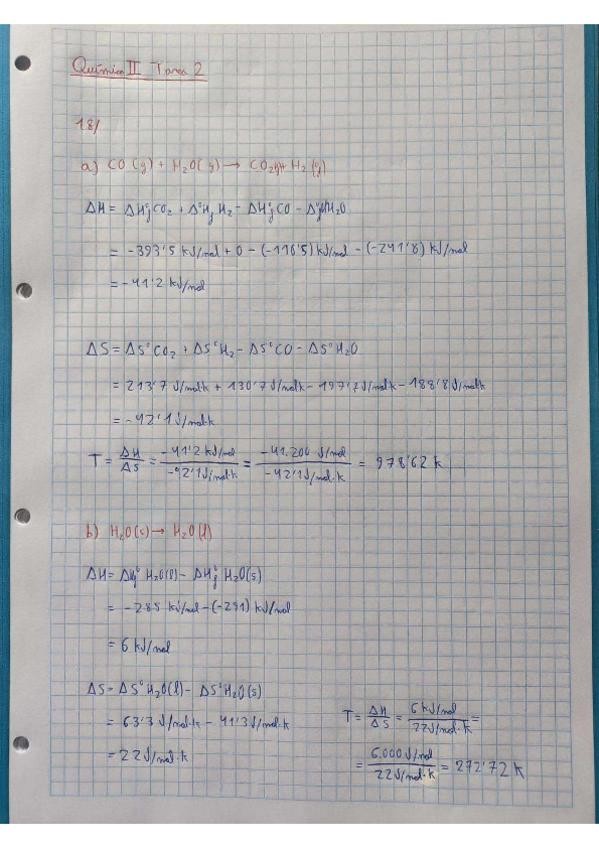 Química II Tarea 2
18/
a) CO (g) + H₂O(g) → CO₂(g)+ H₂ (g)
ΔH = ΔH°f CO₂ + Δ°Hf H₂ - ΔH°f CO - Δ°fH H₂O
= -393'5 kJ/mol + 0 - (-110'5) kJ/mol - (-241'8) kJ/mol
= -41'2 kJ/mol
ΔS = ΔS°CO₂ + ΔS°H₂ - ΔS°CO - ΔS°H₂O
= 213'7 J/mol·k + 130'7 J/mol·k - 197'7 J/mol·k - 188'8 J/mol·k
= -42'1 J/mol·k
T = ΔH/ΔS = -41'2 kJ/mol / -42'1 J/mol·k = -41.200 J/mol / -42'1 J/mol·k = 978'62 k
b) H₂O(s) → H₂O(l)
ΔH = ΔHf° H₂O(l) - ΔHf° H₂O(s)
= -285 kJ/mol - (-291) kJ/mol
= 6 kJ/mol
ΔS = ΔS°H₂O(l) - ΔS°H₂O(s)
= 63'3 J/mol·k - 41'3 J/mol·k
= 22 J/mol·k
T = ΔH/ΔS = 6 kJ/mol / 22 J/mol·k =
= 6.000 J/mol / 22 J/mol·k = 272'72 k